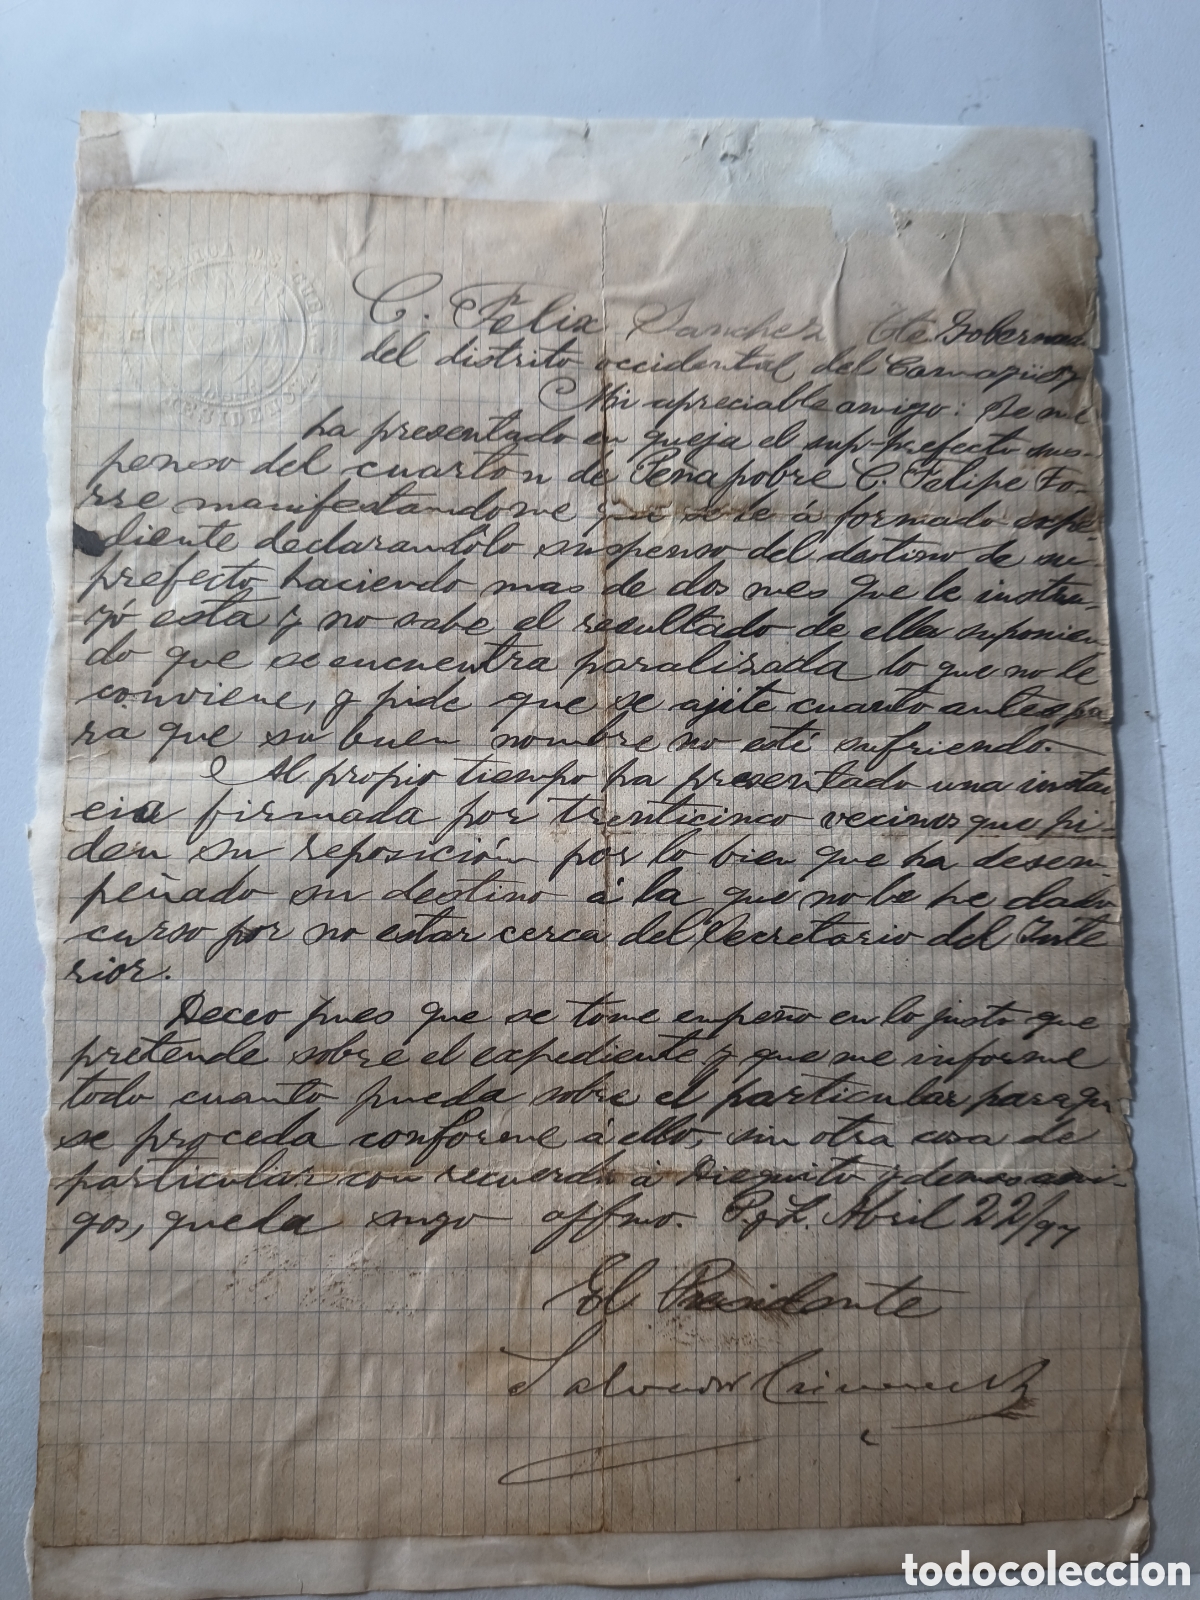 C. Felix Sanchez Tte Goberna
del distrito occidental del Camagüey
Mi apreciable amigo: Se me
ha presentado en queja el sup-prefecto sus-
penso del cuarton de Peñapobre C. Felipe To-
rre manifestandome que se le á formado expe-
diente declarandolo suspenso del destino de su-
prefecto haciendo mas de dos mes que le instru-
yó esta y no sabe el resultado de ella suponien
do que se encuentra paralisada lo que no le
conviene, y pide que se ajite cuanto antes pa
ra que su buen nombre no esté sufriendo.-
Al propio tiempo ha presentado una instan
cia firmada por trenticinco vecinos que pi-
den su reposición por lo bien que ha desem-
peñado su destino á la que no le he dado
curso por no estar cerca del Secretario del Inte
rior.
Deceo pues que se tome empeño en lo justo que
pretende sobre el expediente y que me informe
todo cuanto pueda sobre el particular para que
se proceda conforme á ello, sin otra cosa de
particular con recuerdo á Dieguito y demas ami-
gos, queda suyo affmo. P. y L. Abril 22/97
El Presidente
Salvador Cisneros B
todocoleccion